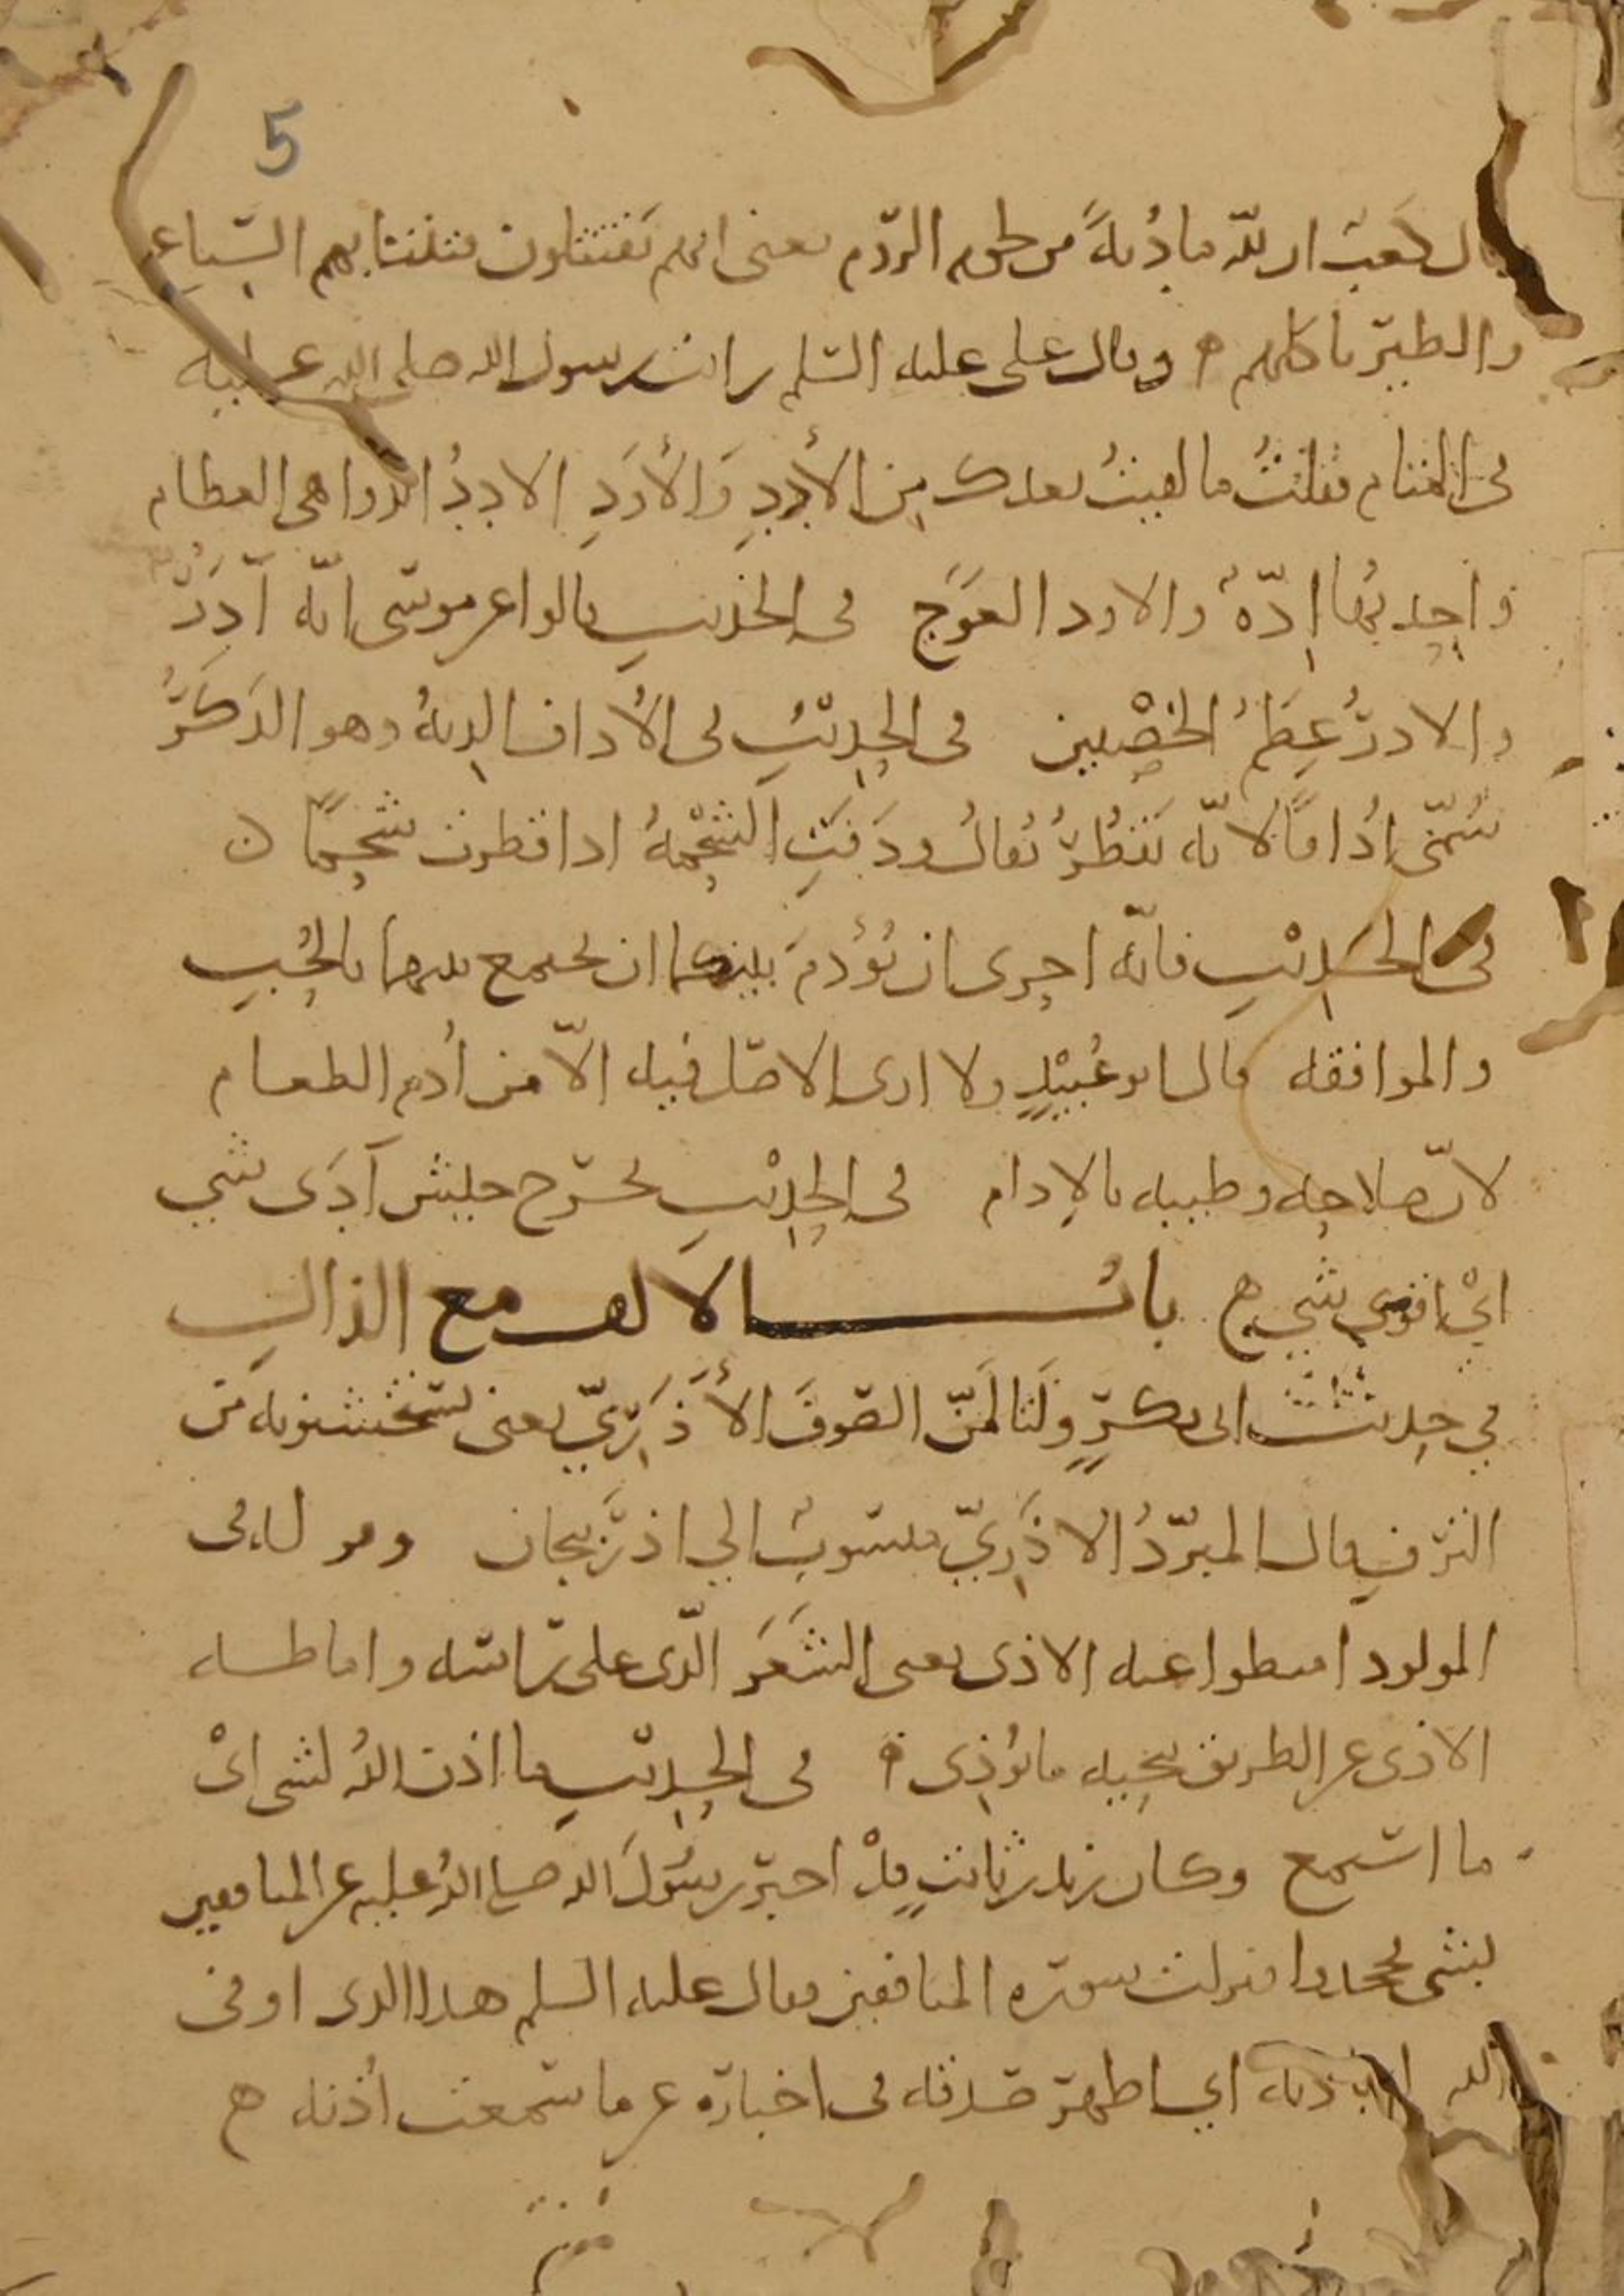 5
قال كعبٌ ان لله مأدُبةً من لحوم الرّوم يعنى انهم يَقتتلون فتنتابهم السّباع
والطير تاكلهم ه وقال على عليه السلم رايت رسول الله صلى الله عليه
فى المنام فقلتُ ما لقيتُ بعدك مِن الأدَدِ وَالأَوَدِ الاددُ الدواهى العظام
واحدتُها اِدّةٌ والاود العَوَج فى الحديثِ قالوا عن موسى انّه آدَرُ
والادرُ عِظَمُ الخصْيين فى الحديثِ فى الأُداف الديةُ وهو الذَكَرُ
سُمّى اُدافًا لانّه يَقطُرُ يُقالُ ودَفَتِ الشحْمةُ اذا قطرت شحمًا ن
فى الحديْثِ فانّه احرى ان يُؤدمَ بينكما ان يجتمع بينهما بالحُب
والموافقه قال ابو عُبيْدٍ ولا ارى الاصل فيه الاّ من أدم الطعام
لانّ صلاحه وطيبه بالإدام فى الحديْثِ يخرج جيش آدَى شي
ايْ اقوى شي ه بابُ الالف مع الذال
في حديث ابى بكرٍ ولَتالَمُنّ الصوفَ الأَذَرِيّ يعنى تستخشنونه من
الترف قال المبرّدُ الاذَرِيّ منسوبٌ الي اذربيجان وقوله فى
المولود اميطوا عنه الاذى يعنى الشَعَرَ الّذى على راسه واماطة
الاذى عن الطريق تنحيه ما يُؤذِى ه فى الحديثِ ما اذن اللهُ لشى اىْ
ما استمع وكان زيد بن ثابتٍ قدْ اخبر رسُولَ الله صلى اللهُ عليه عن المنافقين
بشى فجحدوا فنزلت سورة المنافقين فقال عليه السلم هذا الذى اوفى
الله باذنه اي اظهر صدقه فى اخباره عن ما سمعت أذنه ه